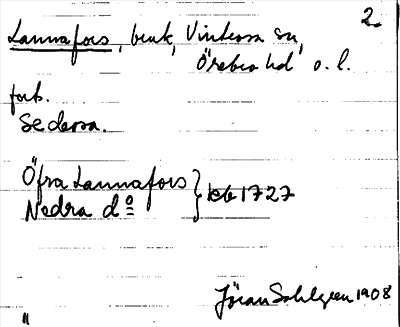 2.
Lannafors, bruk, Vintrosa sn,
Örebro hd o. l.
forts.
Se dessa.
Öfra Lannafors
Nedra dº } Jb 1727
Jöran Sahlgren 1908
"